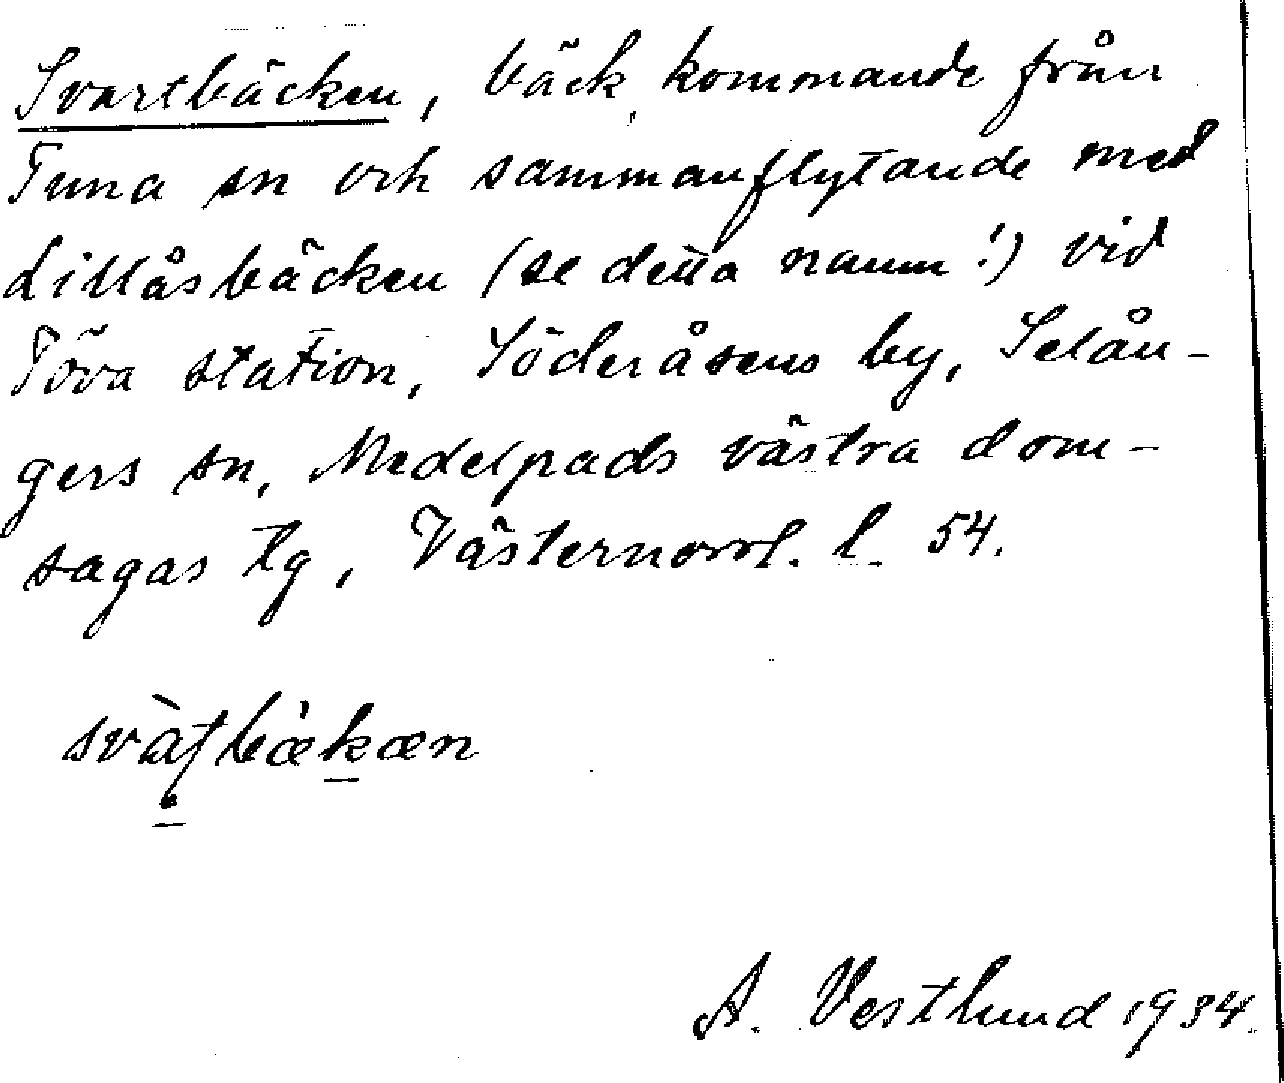 Svartbäcken, bäck kommande från
Tuna sn och sammanflytande med
Lillåsbäcken (se detta namn!) vid
Töva station, Söderåsens by, Selån-
gers sn, Medelpads västra dom-
sagas tg, Västernorrl. l. 54.
A. Vestlund 1934.